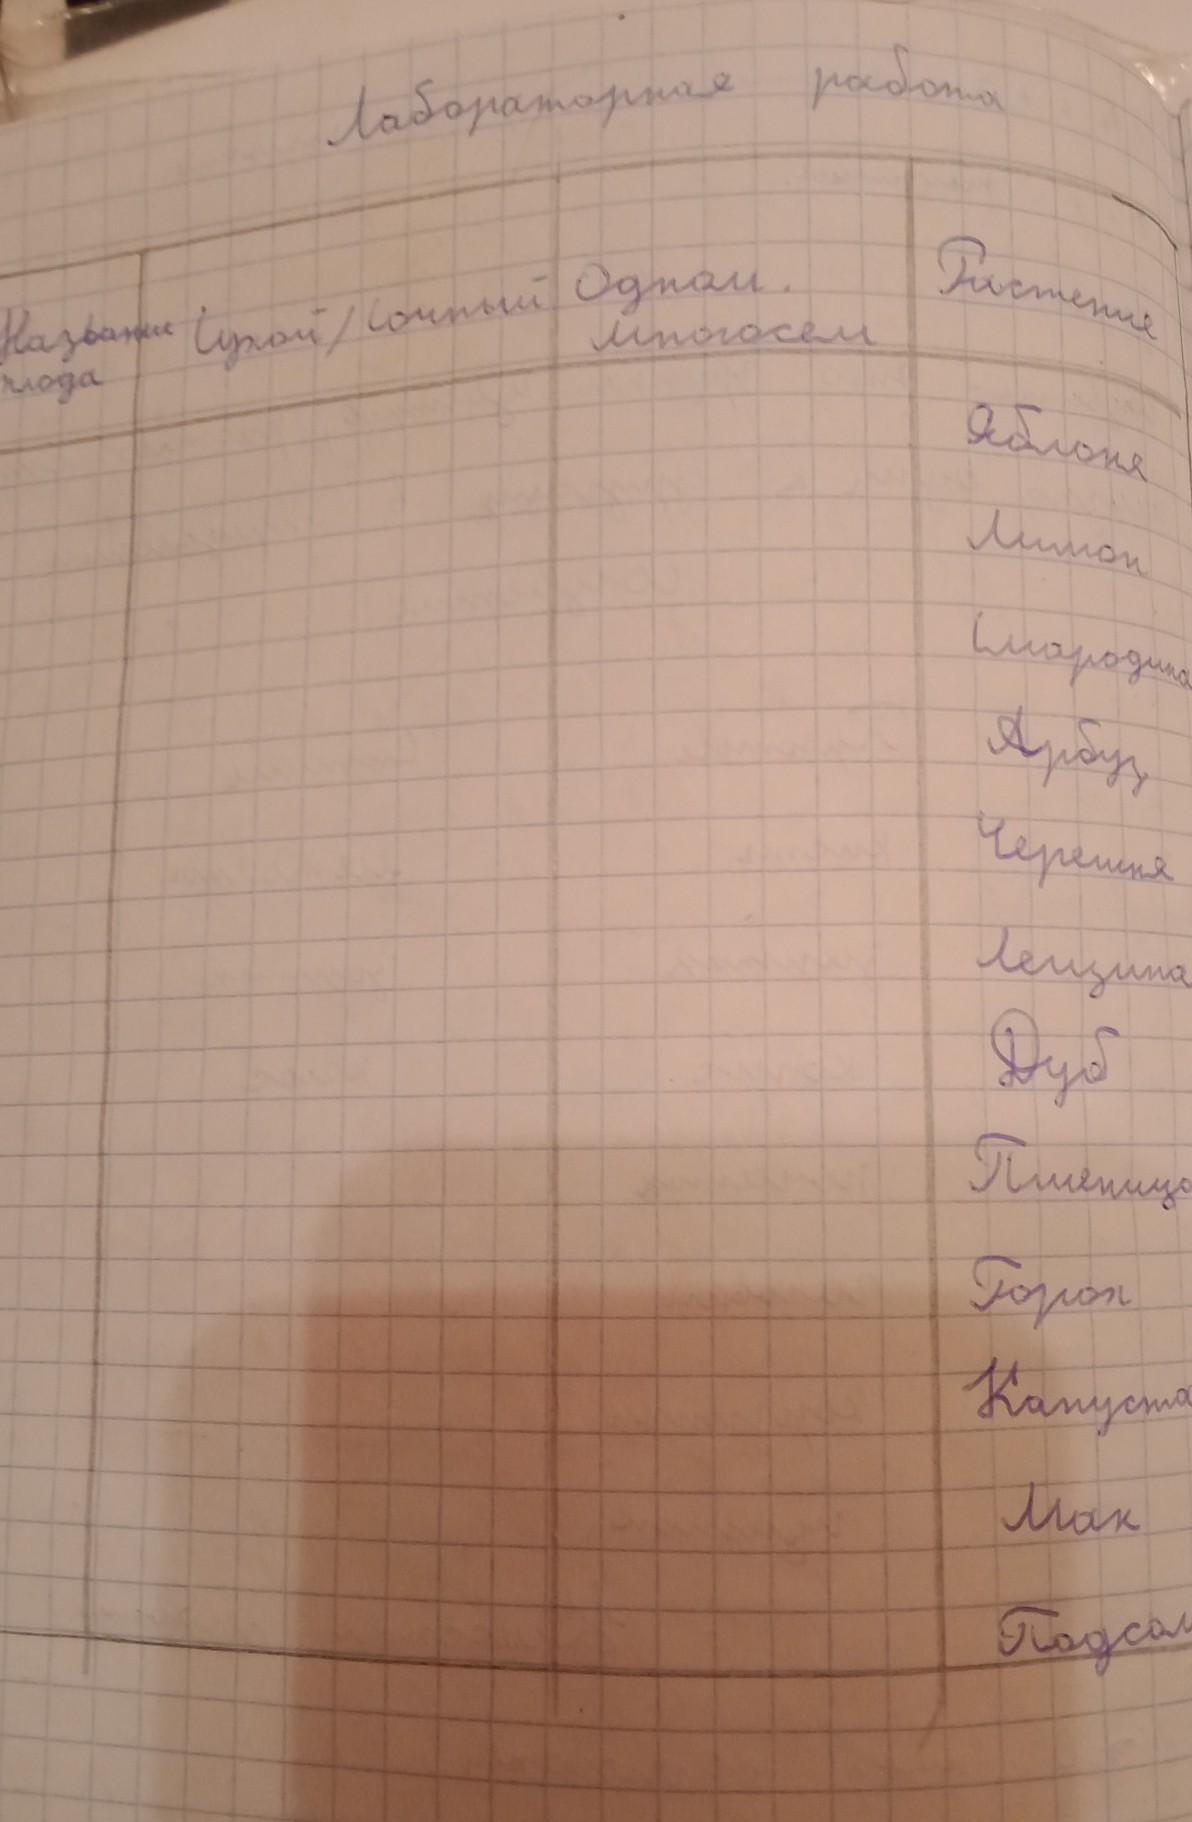 Лабораторная работа
Название
плода
Сухой/Сочный
Однои.
многосем
Растение
Яблоня
Лимон
Смародина
Арбуз
Черешня
Лещина
Дуб
Пшеница
Горох
Капуста
Мак
Подсол